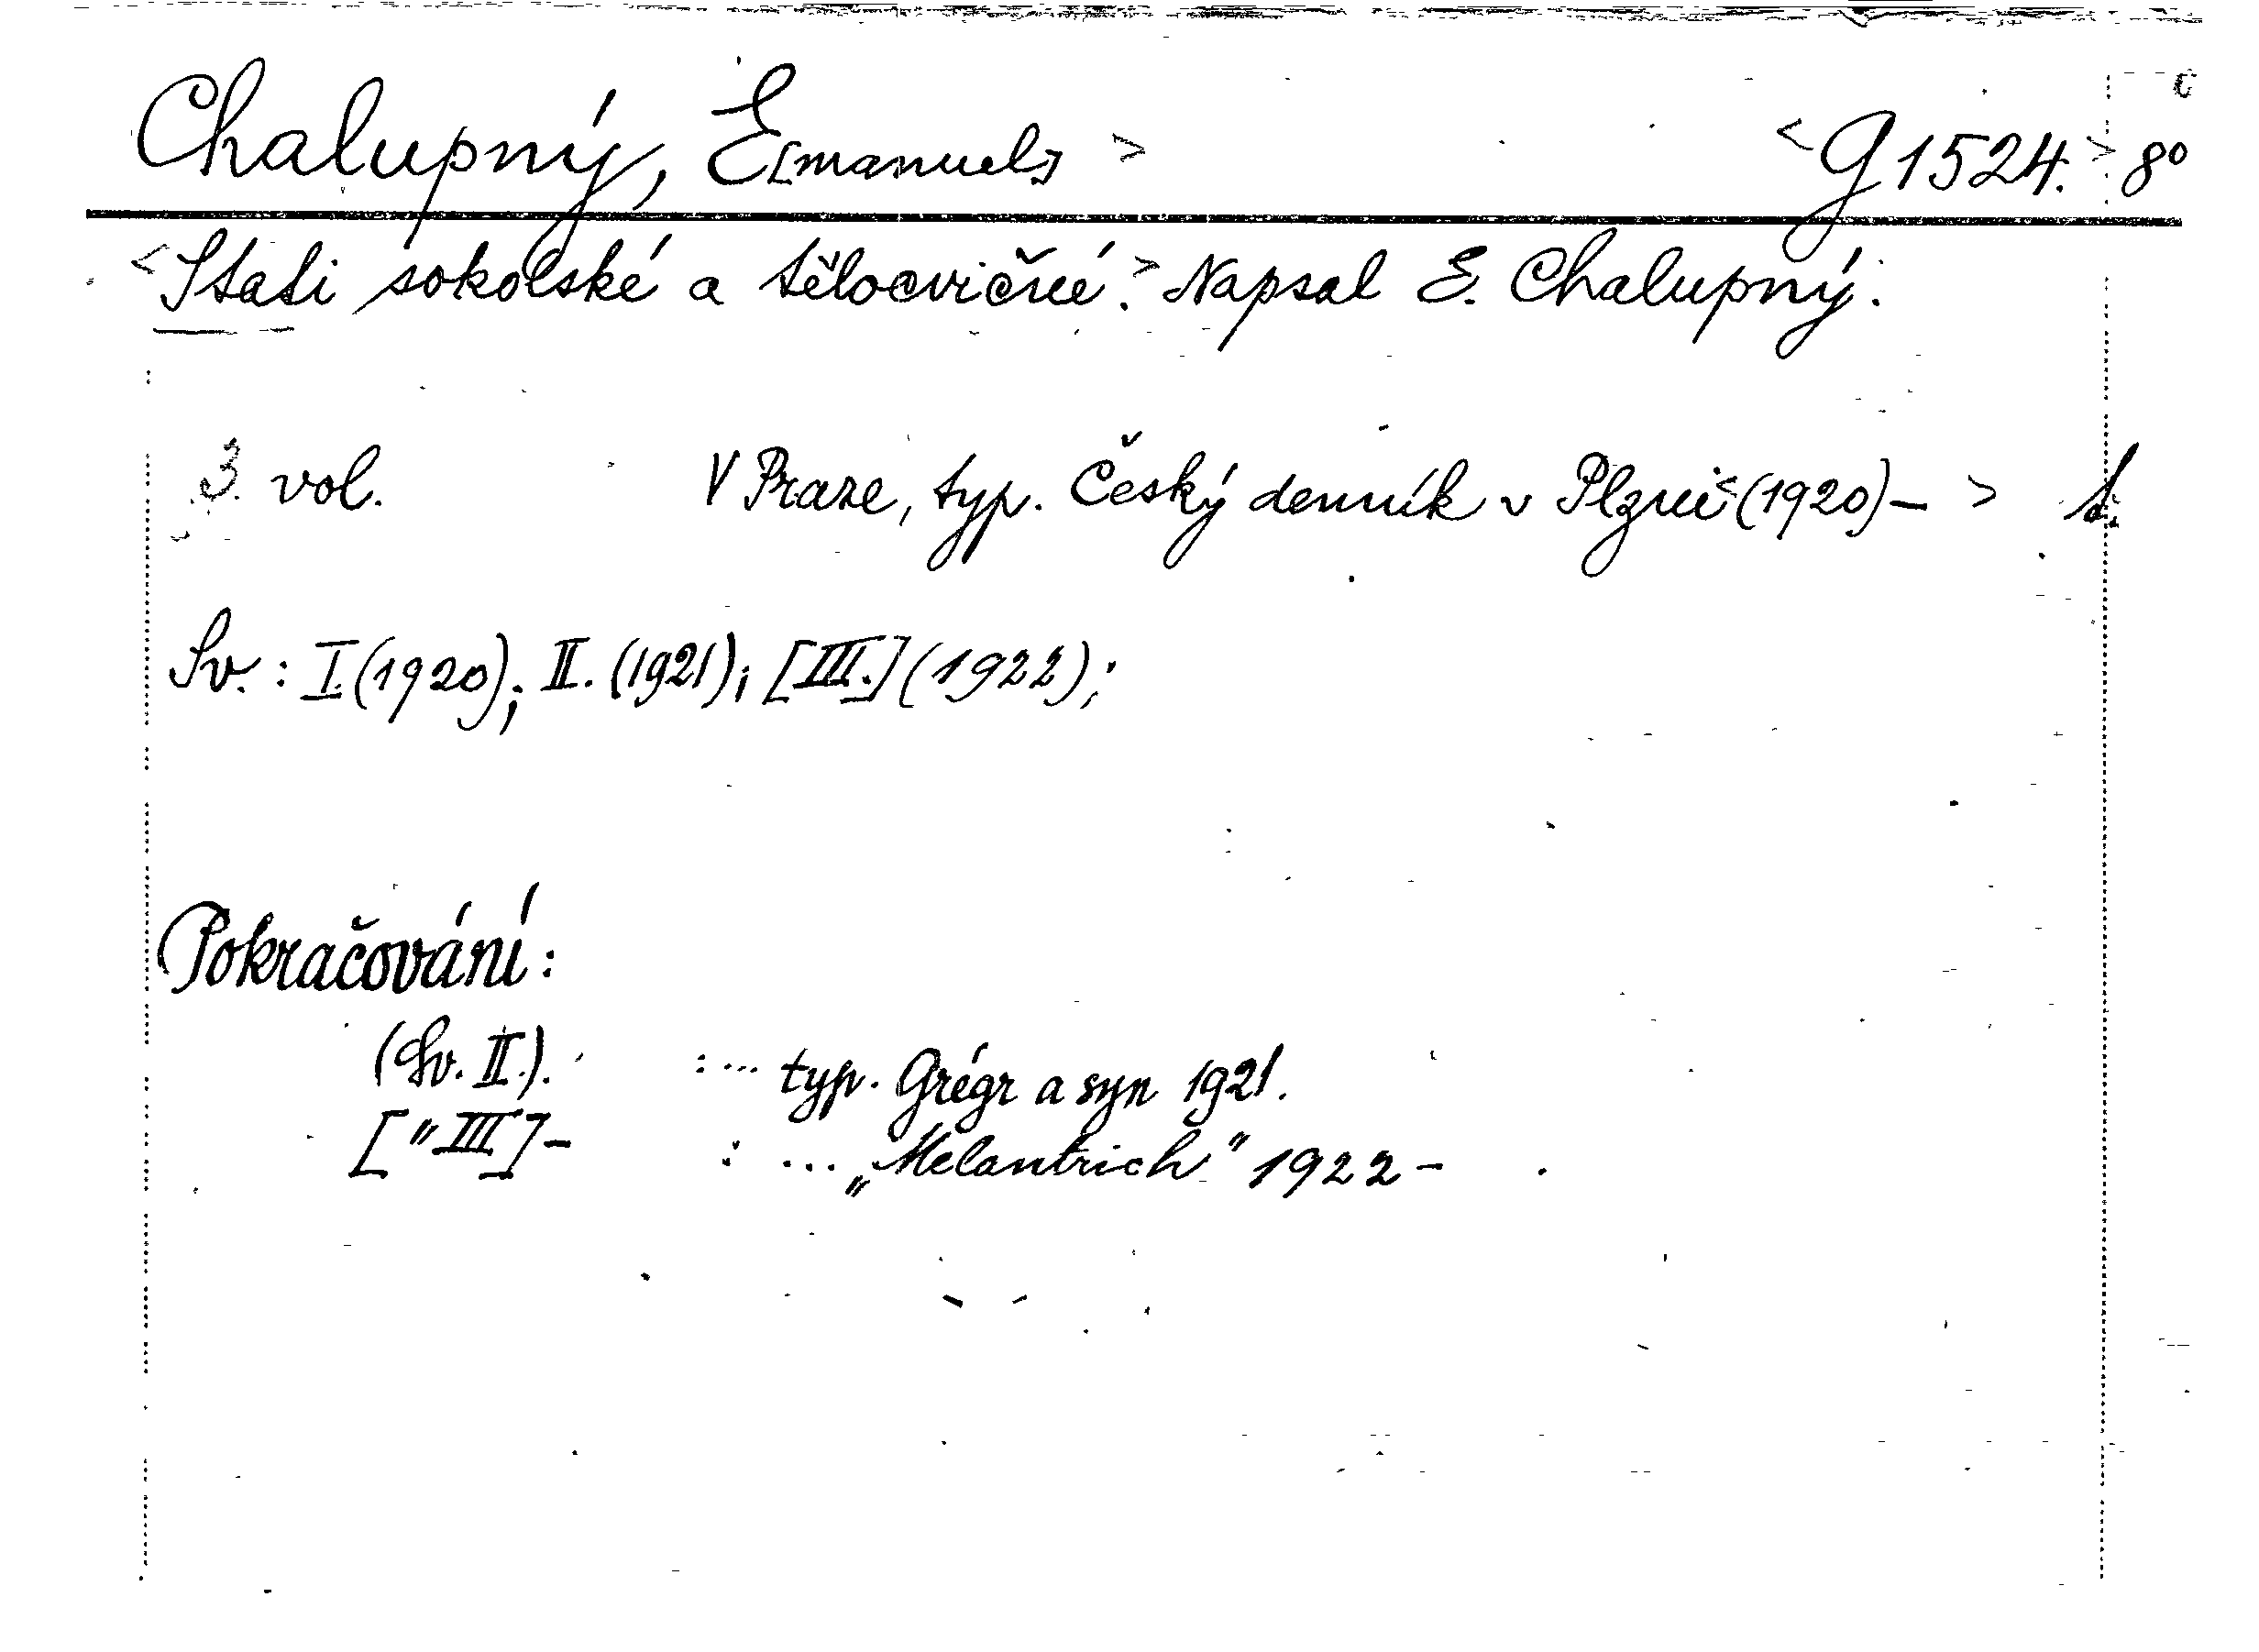 Chalupný, E[manuel] > <G 1524.> 8°
<Stati sokolské a tělocvičné.> Napsal E. Chalupný.
3 vol. V Praze, typ. Český denník v Plzni <(1920)- >
Sv.: I.(1920); II.(1921); [III.](1922);
Pokračování:
(Sv. II.). : ... typ. Grégr a syn 1921.
[" III]- : ... „Melantrich" 1922-